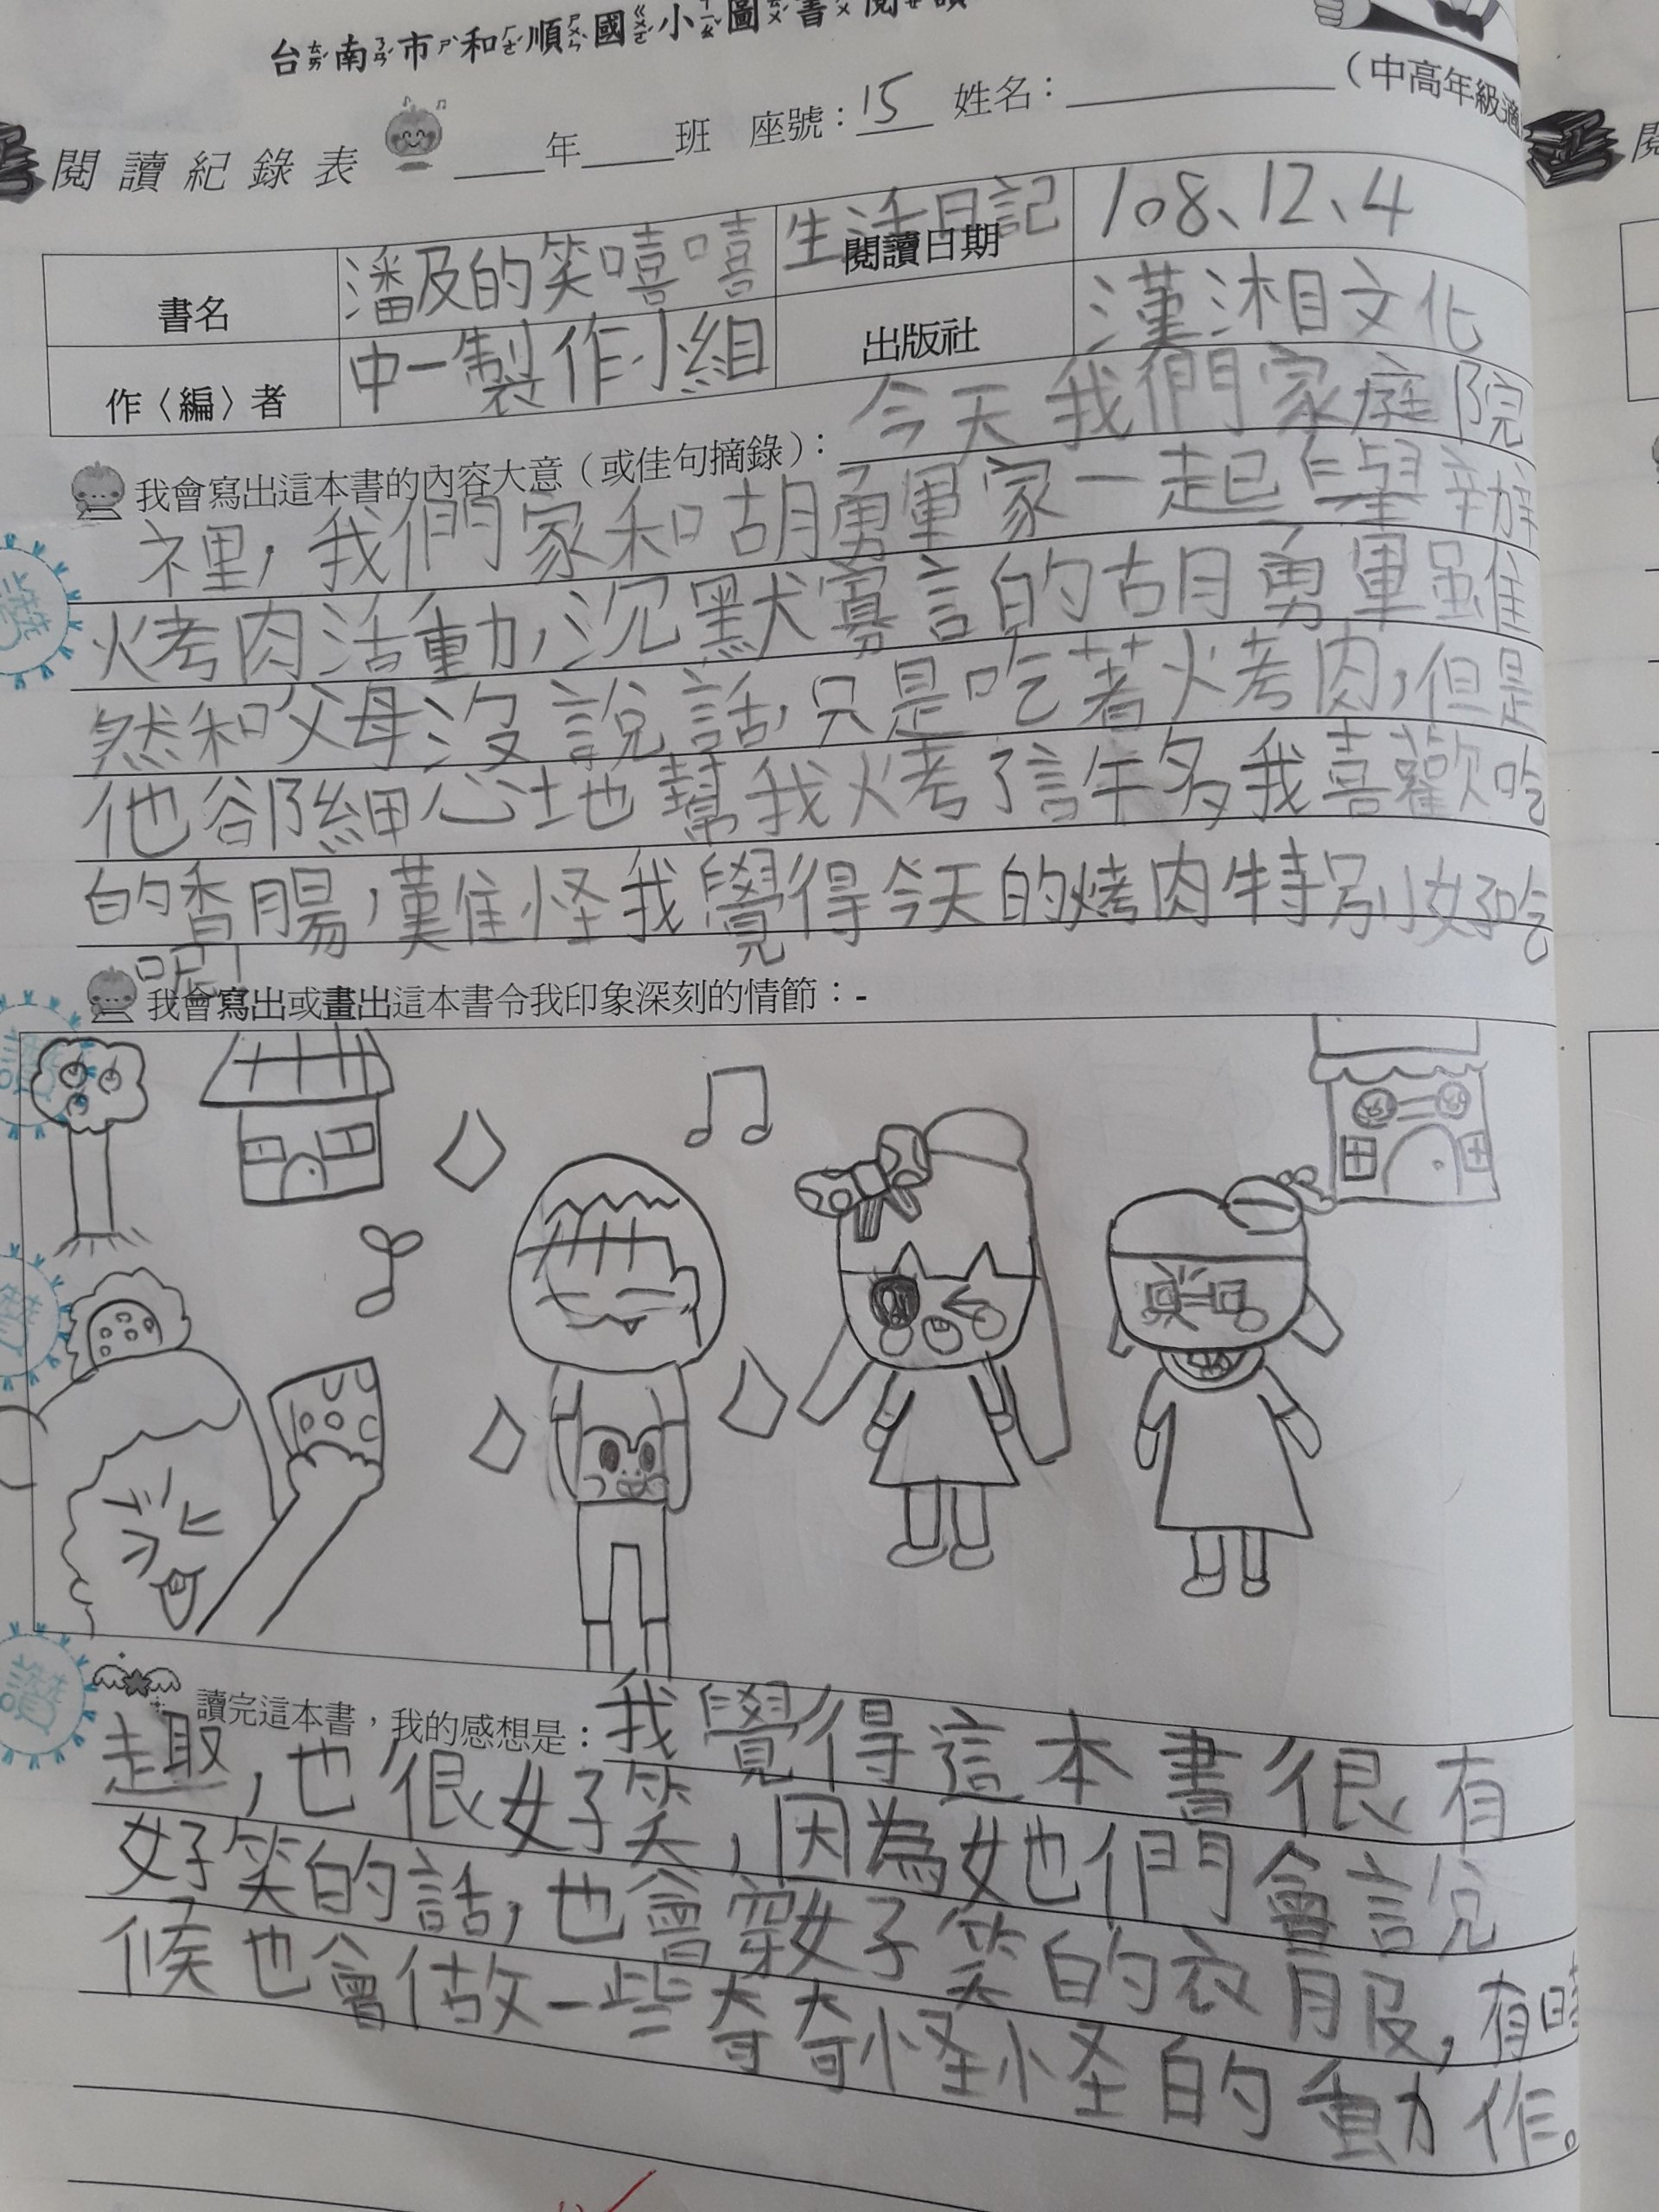 台南市和順國小圖書閱讀
閱讀紀錄表 ____年____班 座號：15 姓名：________（中高年級適
書名 潘及的笑嘻嘻生活日記 閱讀日期 108、12、4
作〈編〉者 中一製作小組 出版社 漢湘文化
我會寫出這本書的內容大意（或佳句摘錄）：今天我們家庭院
裡，我們家和胡勇軍家一起舉辦
烤肉活動，沉默寡言的胡勇軍雖
然和父母沒說話，只是吃著烤肉，但是
他卻細心地幫我烤了許多我喜歡吃
的香腸，難怪我覺得今天的烤肉特別好吃
呢！
我會寫出或畫出這本書令我印象深刻的情節：-
讀完這本書，我的感想是：我覺得這本書很有
趣，也很好笑，因為她們會說
好笑的話，也會穿好笑的衣服，有時
候也會做一些奇奇怪怪的動作。
讚